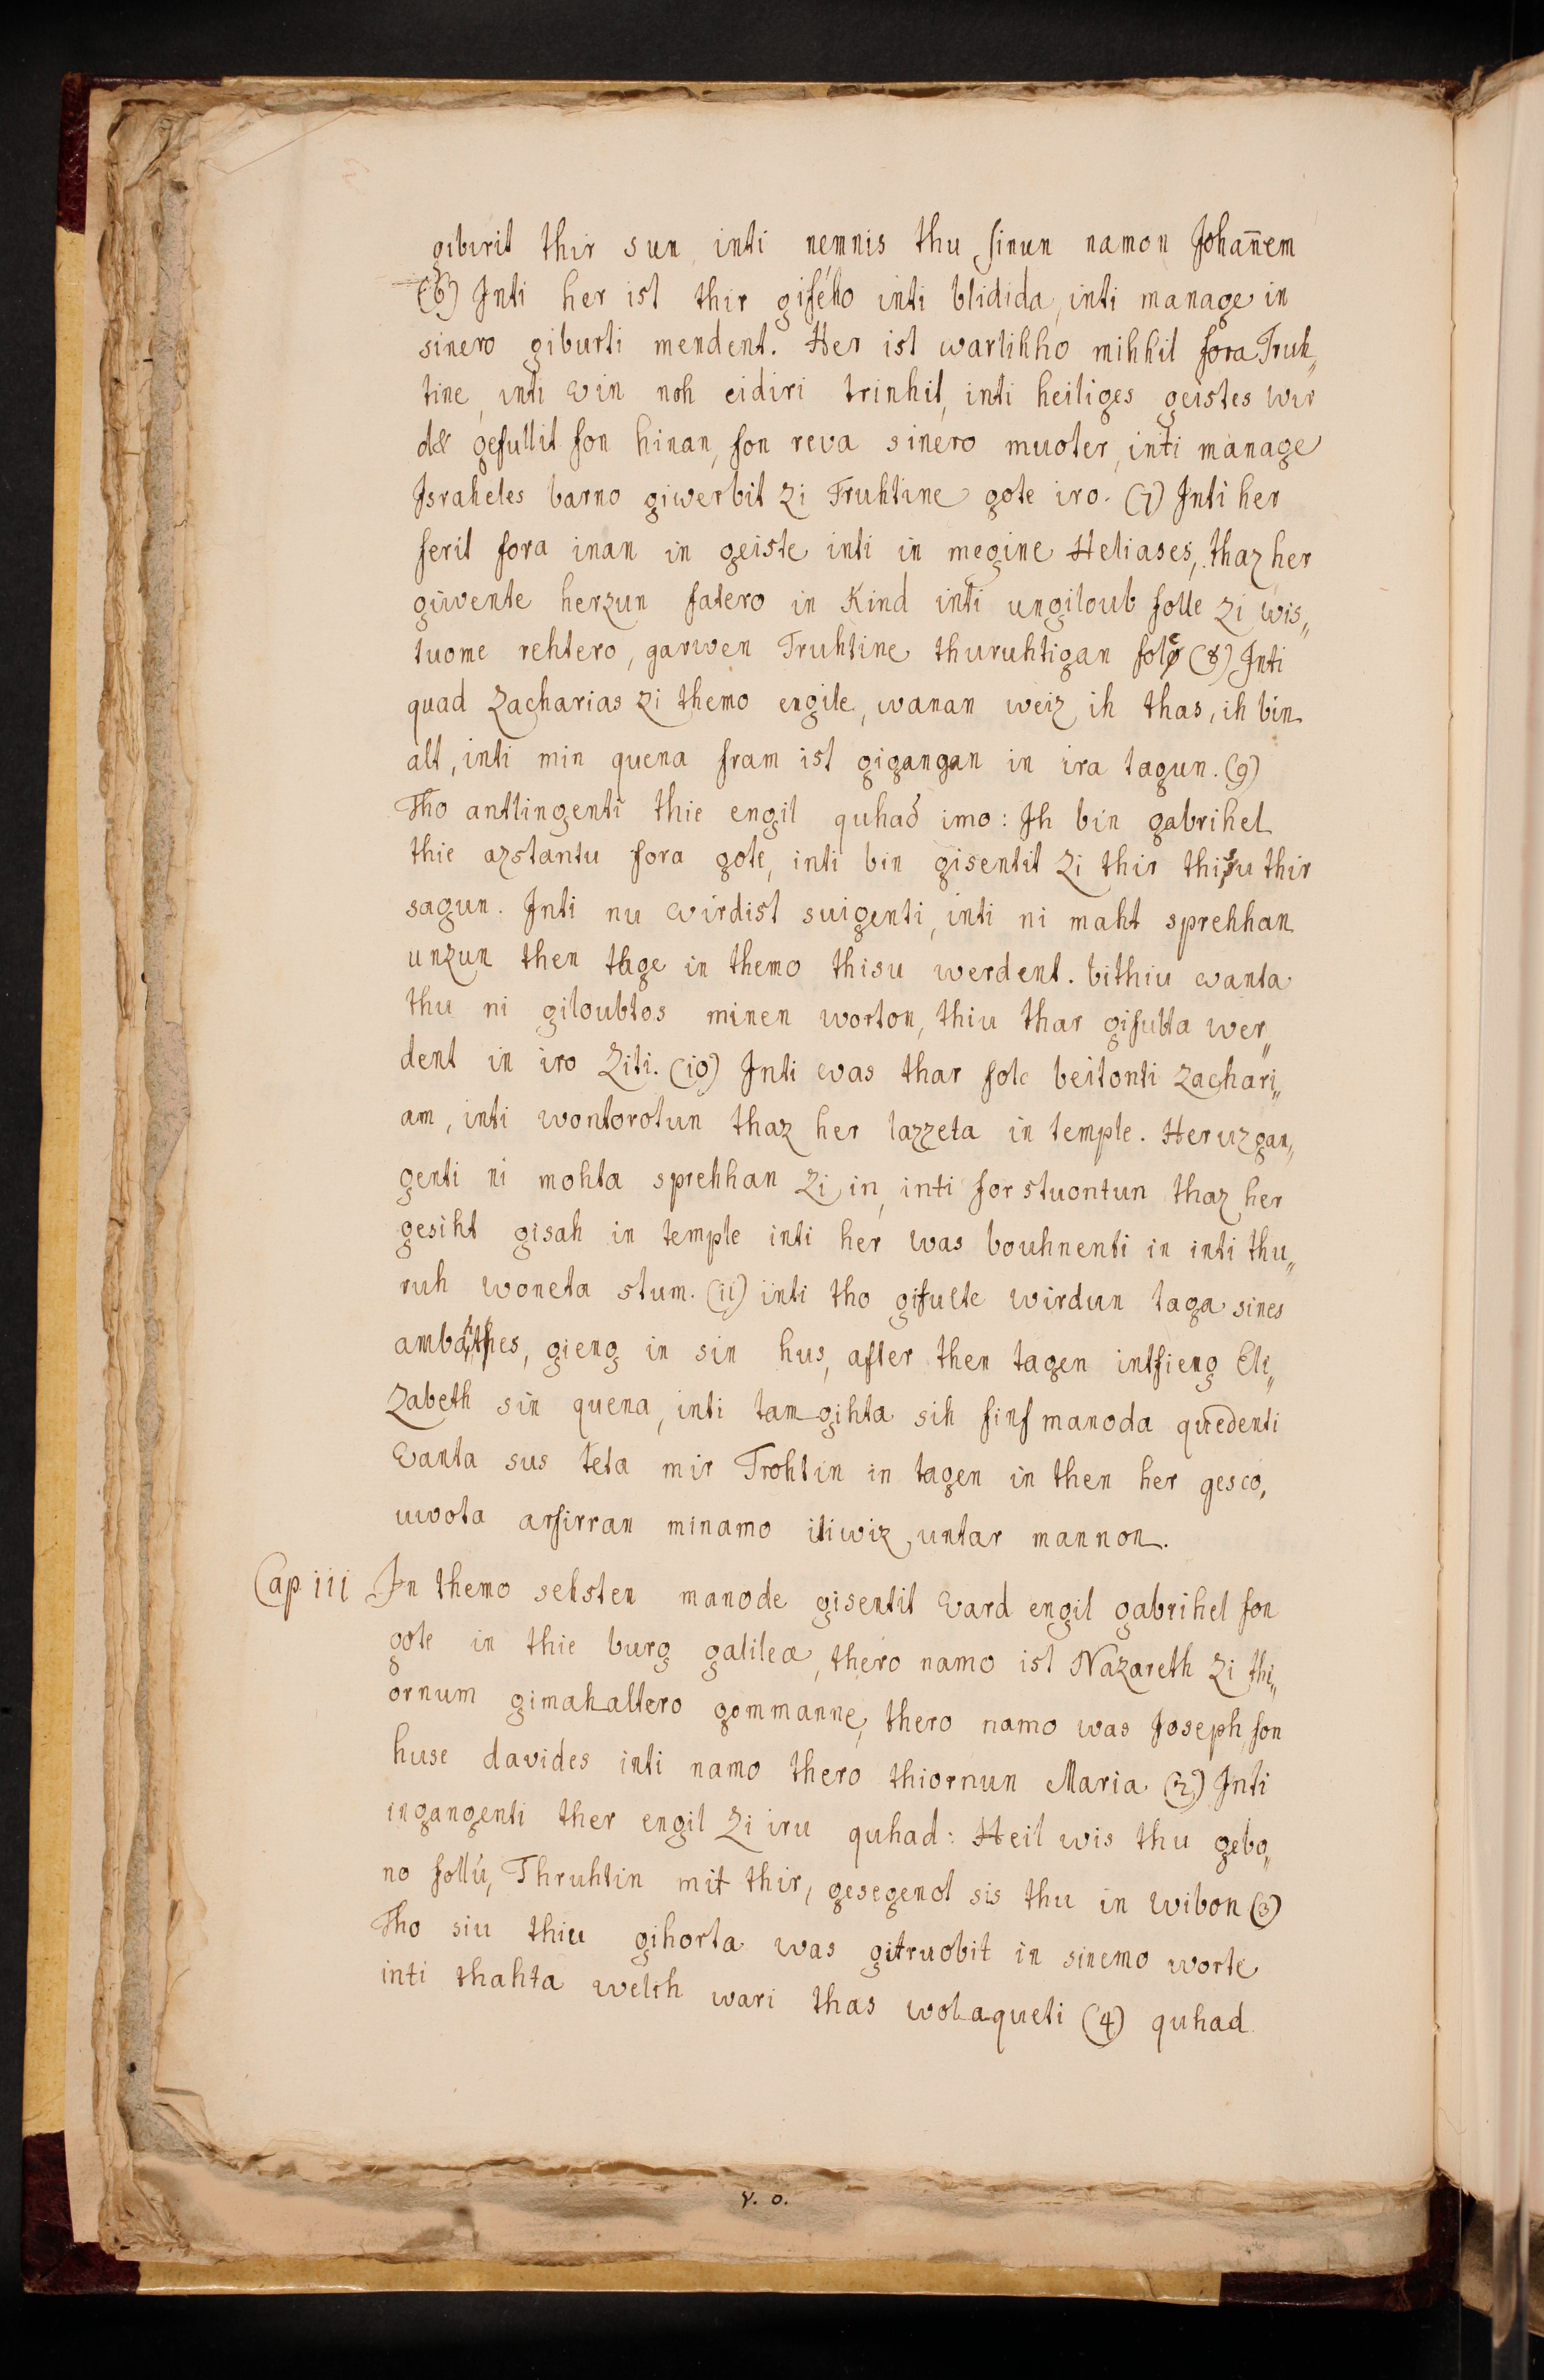 gibirit thir sun, inti nemnis thu sinun namon Johañem
(6) Inti her ist thir gifého inti blidida, inti manage in
sinero giburti mendent. Her ist warlihho mihhil fora Truh„
tine, inti win noh eidiri trinhit, inti heiliges geistes wir
d& gefullit fon hinan, fon reva sinero muoter, inti manage
Israheles barno giwerbit zi Truhtine gote iro. (7) Inti her
ferit fora inan in geiste inti in megine Heliases, thaz her
giwente herzun fatero in Kind inti ungiloub folle zi wis„
tuome rehtero, garwen Truhtine thuruhtigan folc (8) Inti
quad Zacharias zi themo engile, wanan weiz ih thas, ih bin
alt, inti min quena fram ist gigangan in ira tagun. (9)
Tho antlingenti thie engil quhad imo: Ih bin gabrihel
thie azstantu fora gote, inti bin gisentit zi thir thisu thir
sagun. Inti nu wirdist suigenti, inti ni maht sprehhan
unzun then tage in themo thisu werdent. bithiu wanta
thu ni giloubtos minen worton, thiu thar gifulta wer„
dent in iro Ziti. (10) Inti was thar folc beitonti Zachari„
am, inti wontorotun thaz her lazzeta in temple. Her uzgan„
genti ni mohta sprehhan zi in, inti forstuontun thaz her
gesiht gisah in temple inti her was bouhnenti in inti thu„
ruh woneta stum. (ii) inti tho gifulte wirdun taga sines
ambahthes, gieng in sin hus, after then tagen intfieng Eli„
zabeth sin quena, inti tamgihta sih finf manoda quedenti
Wanta sus teta mir Trohtin in tagen in then her gesco,
uwota arfirran minamo itiwiz untar mannon.
Cap iii In themo sehsten manode gisentit Ward engil gabrihel fon
gote in thie burg galilea, thero namo ist Nazareth zi thi„
ornum gimahaltero gommanne, thero namo was Joseph, fon
huse davides inti namo thero thiornun Maria (2) Inti
ingangenti ther engil zi iru quhad: Heil wis thu gebo„
no follú, Thruhtin mit thir, gesegenot sis thu in wibon (3)
Tho siu thiu gihorta was gitruobit in sinemo worte
inti thahta welih wari thas wolaqueti (4) quhad
v. o.